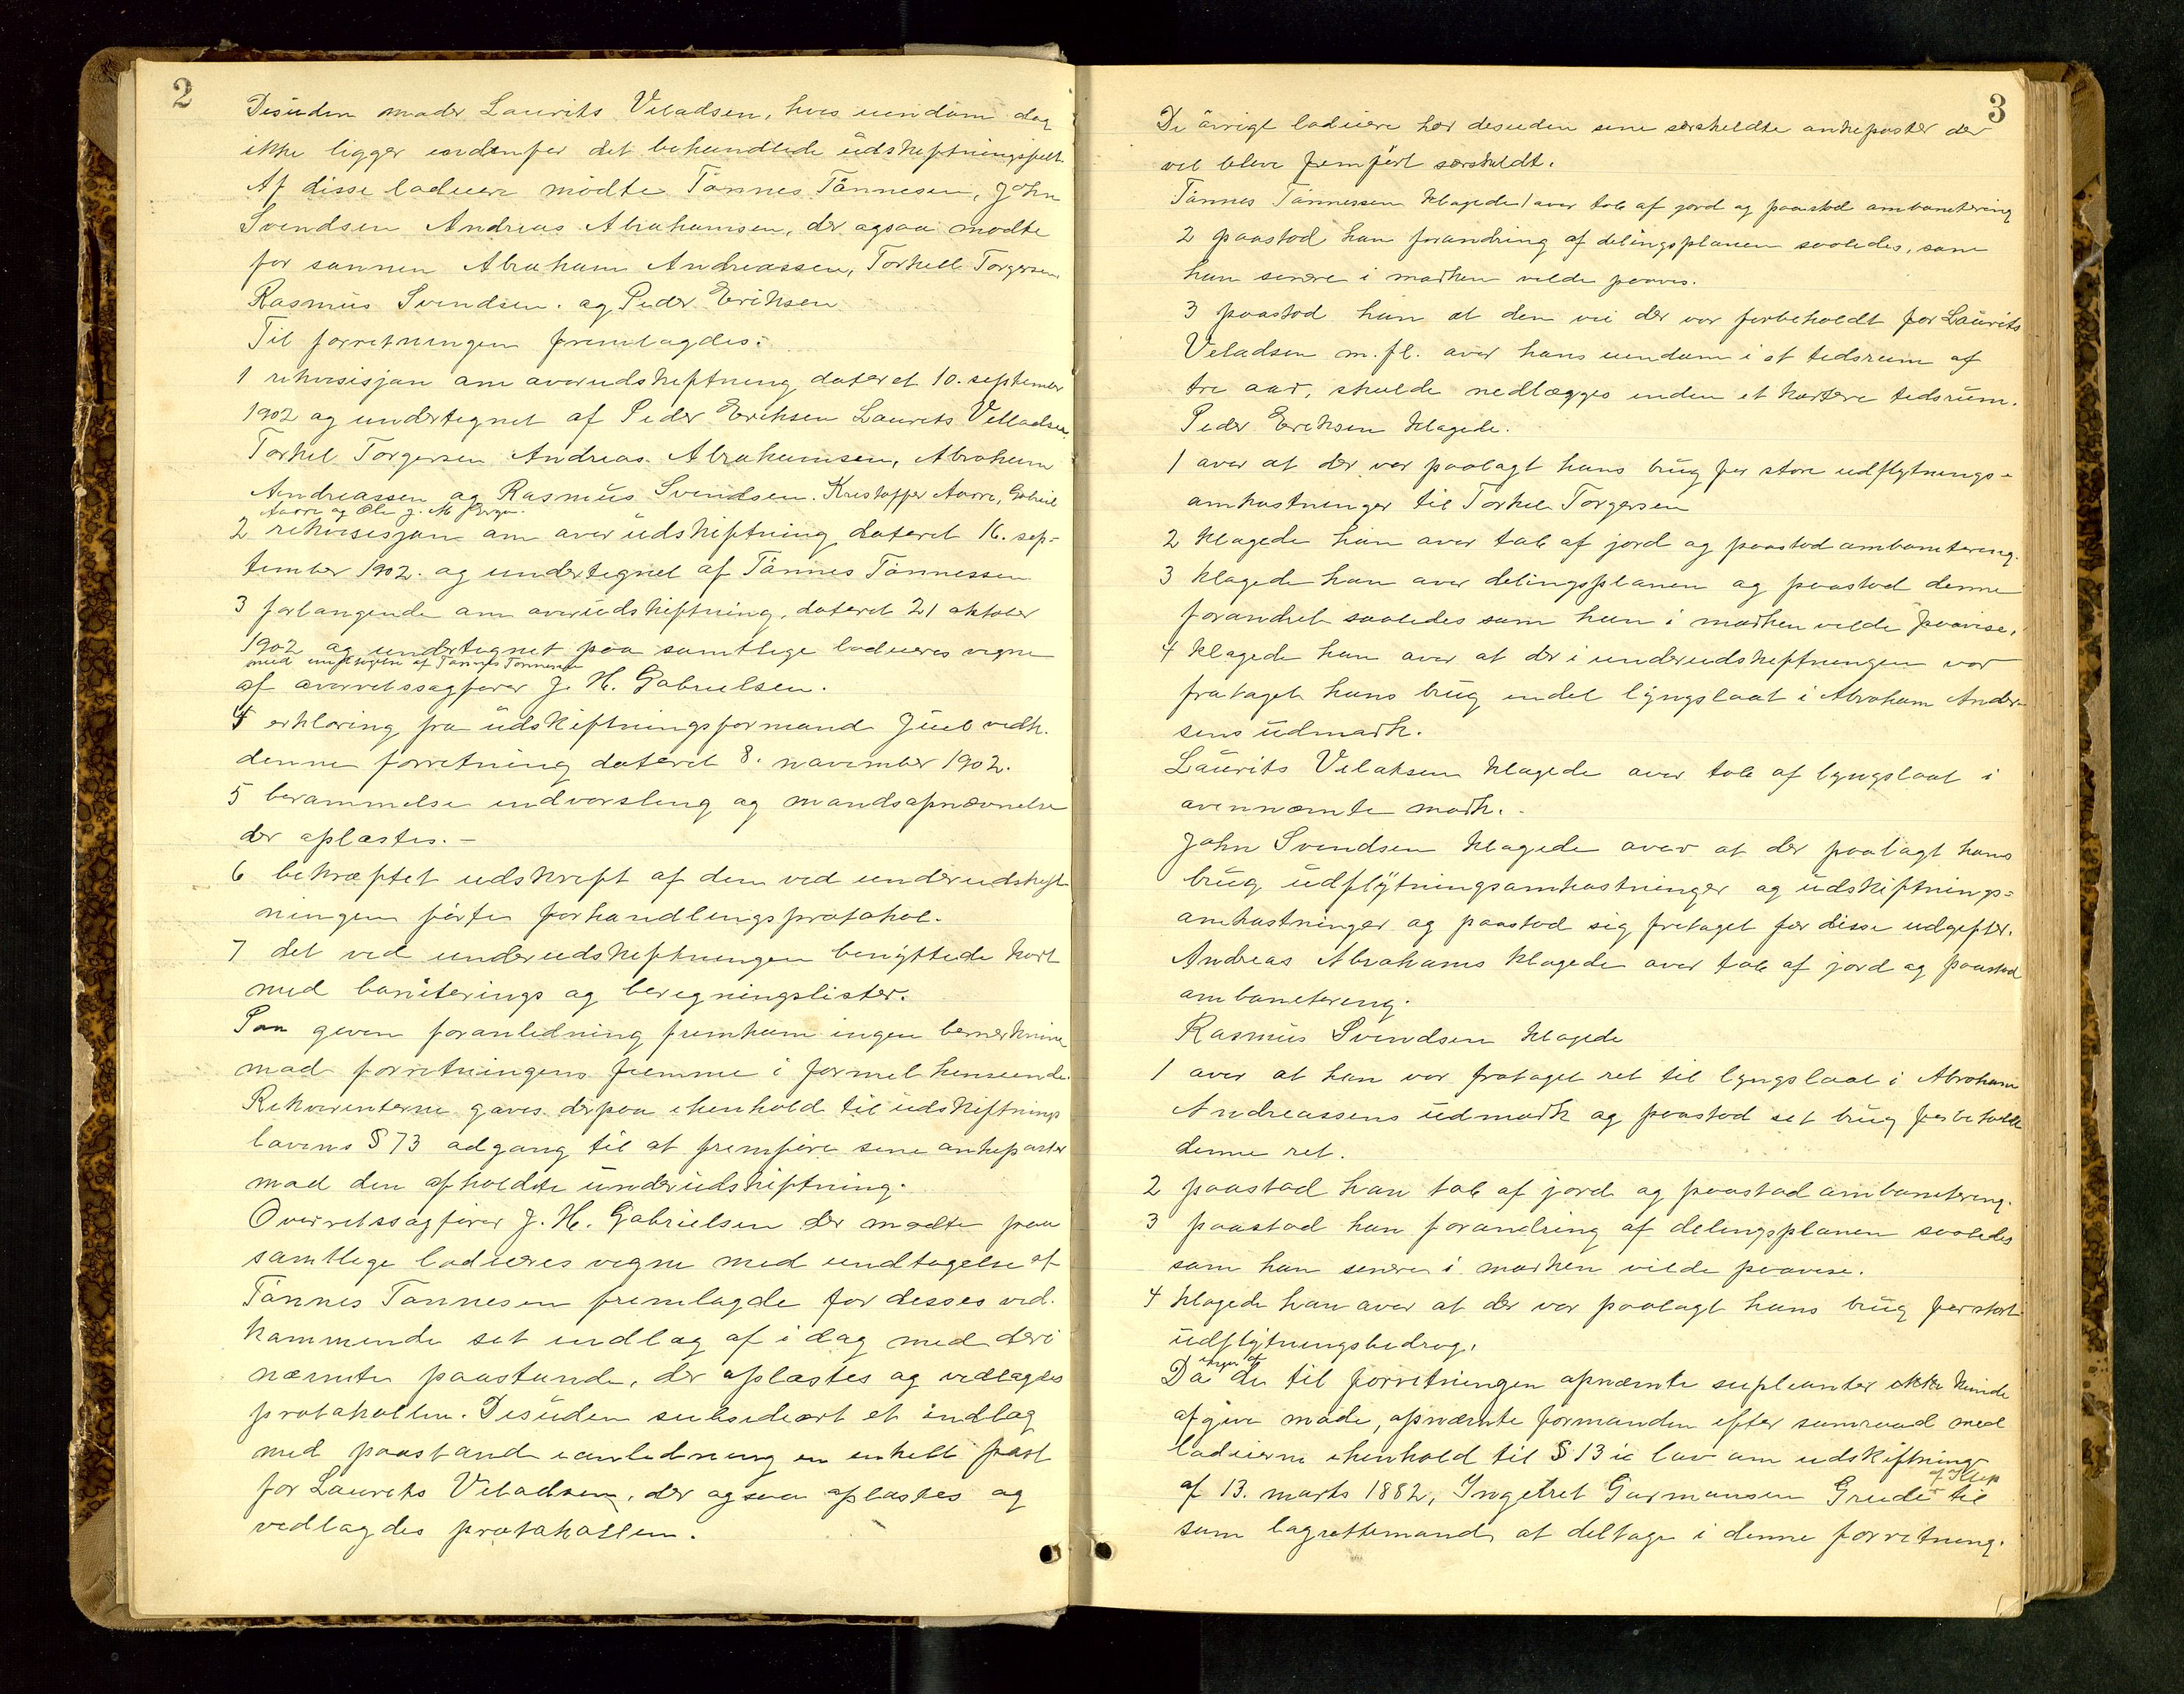 2
Desuden møder Laurits Veladsen, hves eiendom dog
ikke ligger indenfor det behandlede udskiftningsfelt.
Af disse lodeiere mødte Tønnes Tønnesen, John
Svendsen Andreas Abrahamsen, der ogsaa mødte
for sønnen Abraham Andreassen, Torkell Torgersen
Rasmus Svendsen. og Peder Eriksen
Til forretningen fremlagdes:
1 rekvisisjon om overudskiftning dateret 10. september
1902 og undertegnet af Peder Eriksen Laurits Velladsen
Torkel Torgersen Andreas Abrahamsen, Abraham
Andreassen og Rasmus Svendsen. Kristoffer Aarre, Gabriel
Aarre og Ole J. M
2 rekvisisjon om overudskiftning dateret 16. sep-
tember 1902. og undertegnet af Tønnes Tønnessen
3 forlangende om overudskiftning, dateret 21 oktober
1902 og undertegnet paa samtlige lodeieres vegne
med undtagelse af Tønnes Tønnessen
af overretssagfører J. H. Gabrielsen.
4 erklæring fra udskiftningsformand Juel vedk.
denne forretning dateret 8. november 1902.
5 berammelse indvarsling og mandsopnævnelse
der oplæstes. -
6 bekræftet udskrift af den ved underudskift-
ningen førte forhandlingsprotokol.
7 det ved underudskiftningen benyttede kart
med boniterings og beregningslister.
Paa given foranledning fremkom ingen bemerkning
mod forretningens fremme i formel henseende.
Rekvirenterne gaves derpaa ihenhold til udskiftnings
lovens § 73 adgang til at fremføre sine ankeposter
mod den afholdte underudskiftning.
Overretssagfører J. H. Gabrielsen der mødte paa
samtlige lodeieres vegne med undtagelse af
Tønnes Tønnesen fremlagde for desses ved.
kommende set indlæg af i dag med deri
nævnte paastande, der oplæstes og vedlagdes
protokollen. Desuden subsidiært et indlæg
med paastand ianledning en enkelt post
for Laurits Veladsen, der ogsaa oplæstes og
vedlagdes protokollen.
3
De øvrige lodeiere har desuden sine særskeldte ankeposter der
vil bleve fremført særskeldt.
Tønnes Tønnessen klagede 1 over tab af jord og paastod ombonetering
2 paastod han forandring af delingsplanen saaledes, som
han senere i marken velde paavis.
3 paastod han at den vei der var forbeholdt for Laurits
Veladsen m. fl. over hans eiendom i et tedsrum af
tre aar, skulde nedlægges inden et kortere tedsrum.
Peder Ereksen klagede.
1 over at der var paalagt hans brug for store udflytnings-
omkostninger til Torkel Torgersen
2 klagede han over tab af jord og paastod ombonitering.
3 klagede han over delingsplanen og paastod denne
forandret saaledes som han i marken velde paavise.
4 klagede han over at der i underudskeftningen var
frataget hans brug endel lyngslaat i Abraham Ander-
sens udmark.
Laurits Velaksen klagede over tab af lyngslaat i
ovennæmte mark.
John Svendsen klagede over at der paalagt hans
brug udflytningsomkostninger og udskiftnings-
omkostninger og paastod sig fretaget for disse udgefter.
Andreas Abrahams klagede over tab af jord og paastod
ombonetering.
Rasmus Svendsen klagede
1 over at han var frataget ret til lyngslaat i Abraham
Andreassens udmark og paastod set brug forbeholdt
denne ret.
2 paastod han tab af jord og paastod ombonetering.
3 paastod han forandring af delingsplanen saaledes
som han senere i marken vilde paavise.
4 klagede han over at der var paalagt hans brug for stort
udflytningsbedrag.
ingen af
Da de til forretningen opnævnte supleanter ikke kunde
afgive møde, opnævnte formanden efter samraad med
lodeierne ihenhold til § 13 i lov om udskiftning
af Klep
af 13. marts 1882, Ingebret Garmansen Grude til
som lagrettemand at deltage i denne forretning.